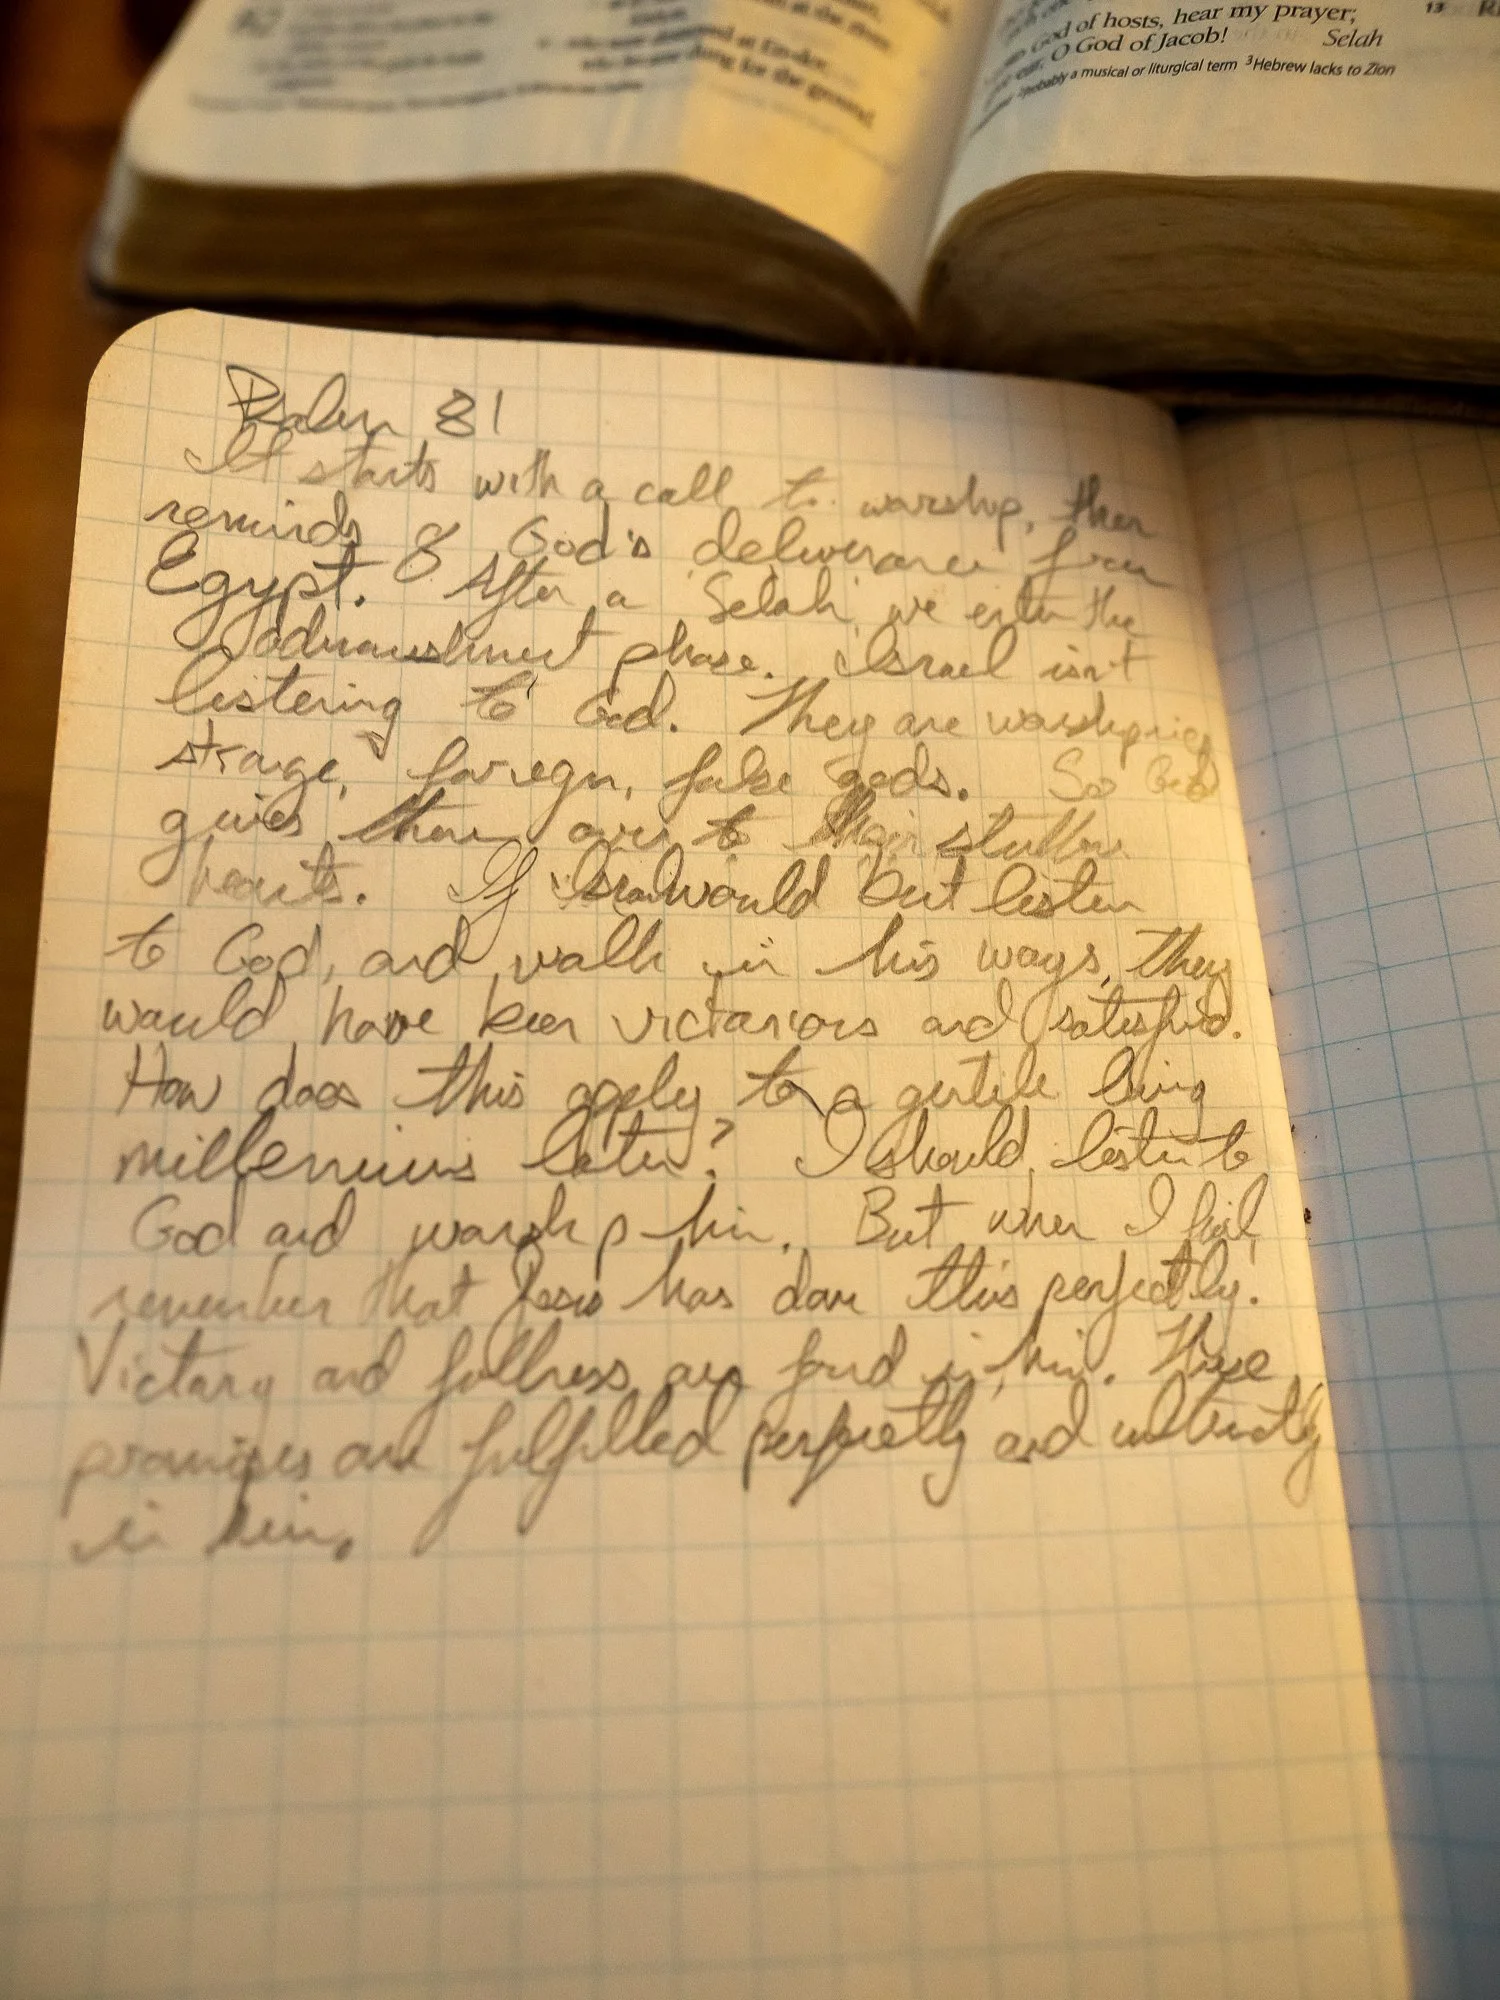 at the river
God of hosts, hear my prayer;
ear, O God of Jacob! Selah
probably a musical or liturgical term 3Hebrew lacks to Zion
13
Psalm 81
It starts with a call to worship, then
reminds of God's deliverance from
Egypt. After a Selah, we enter the
admonishment phase. Israel isn't
listening to God. They are worshiping
strange, foreign, false gods. So God
gives them over to their stubborn
hearts. If Israel would but listen
to God, and walk in his ways, they
would have been victorious and satisfied.
How does this apply to a gentile living
millenniums later? I should listen to
God and worship him. But when I fail,
remember that Jesus has done this perfectly.
Victory and fullness are found in him. These
promises are fulfilled perfectly and ultimately
in him.